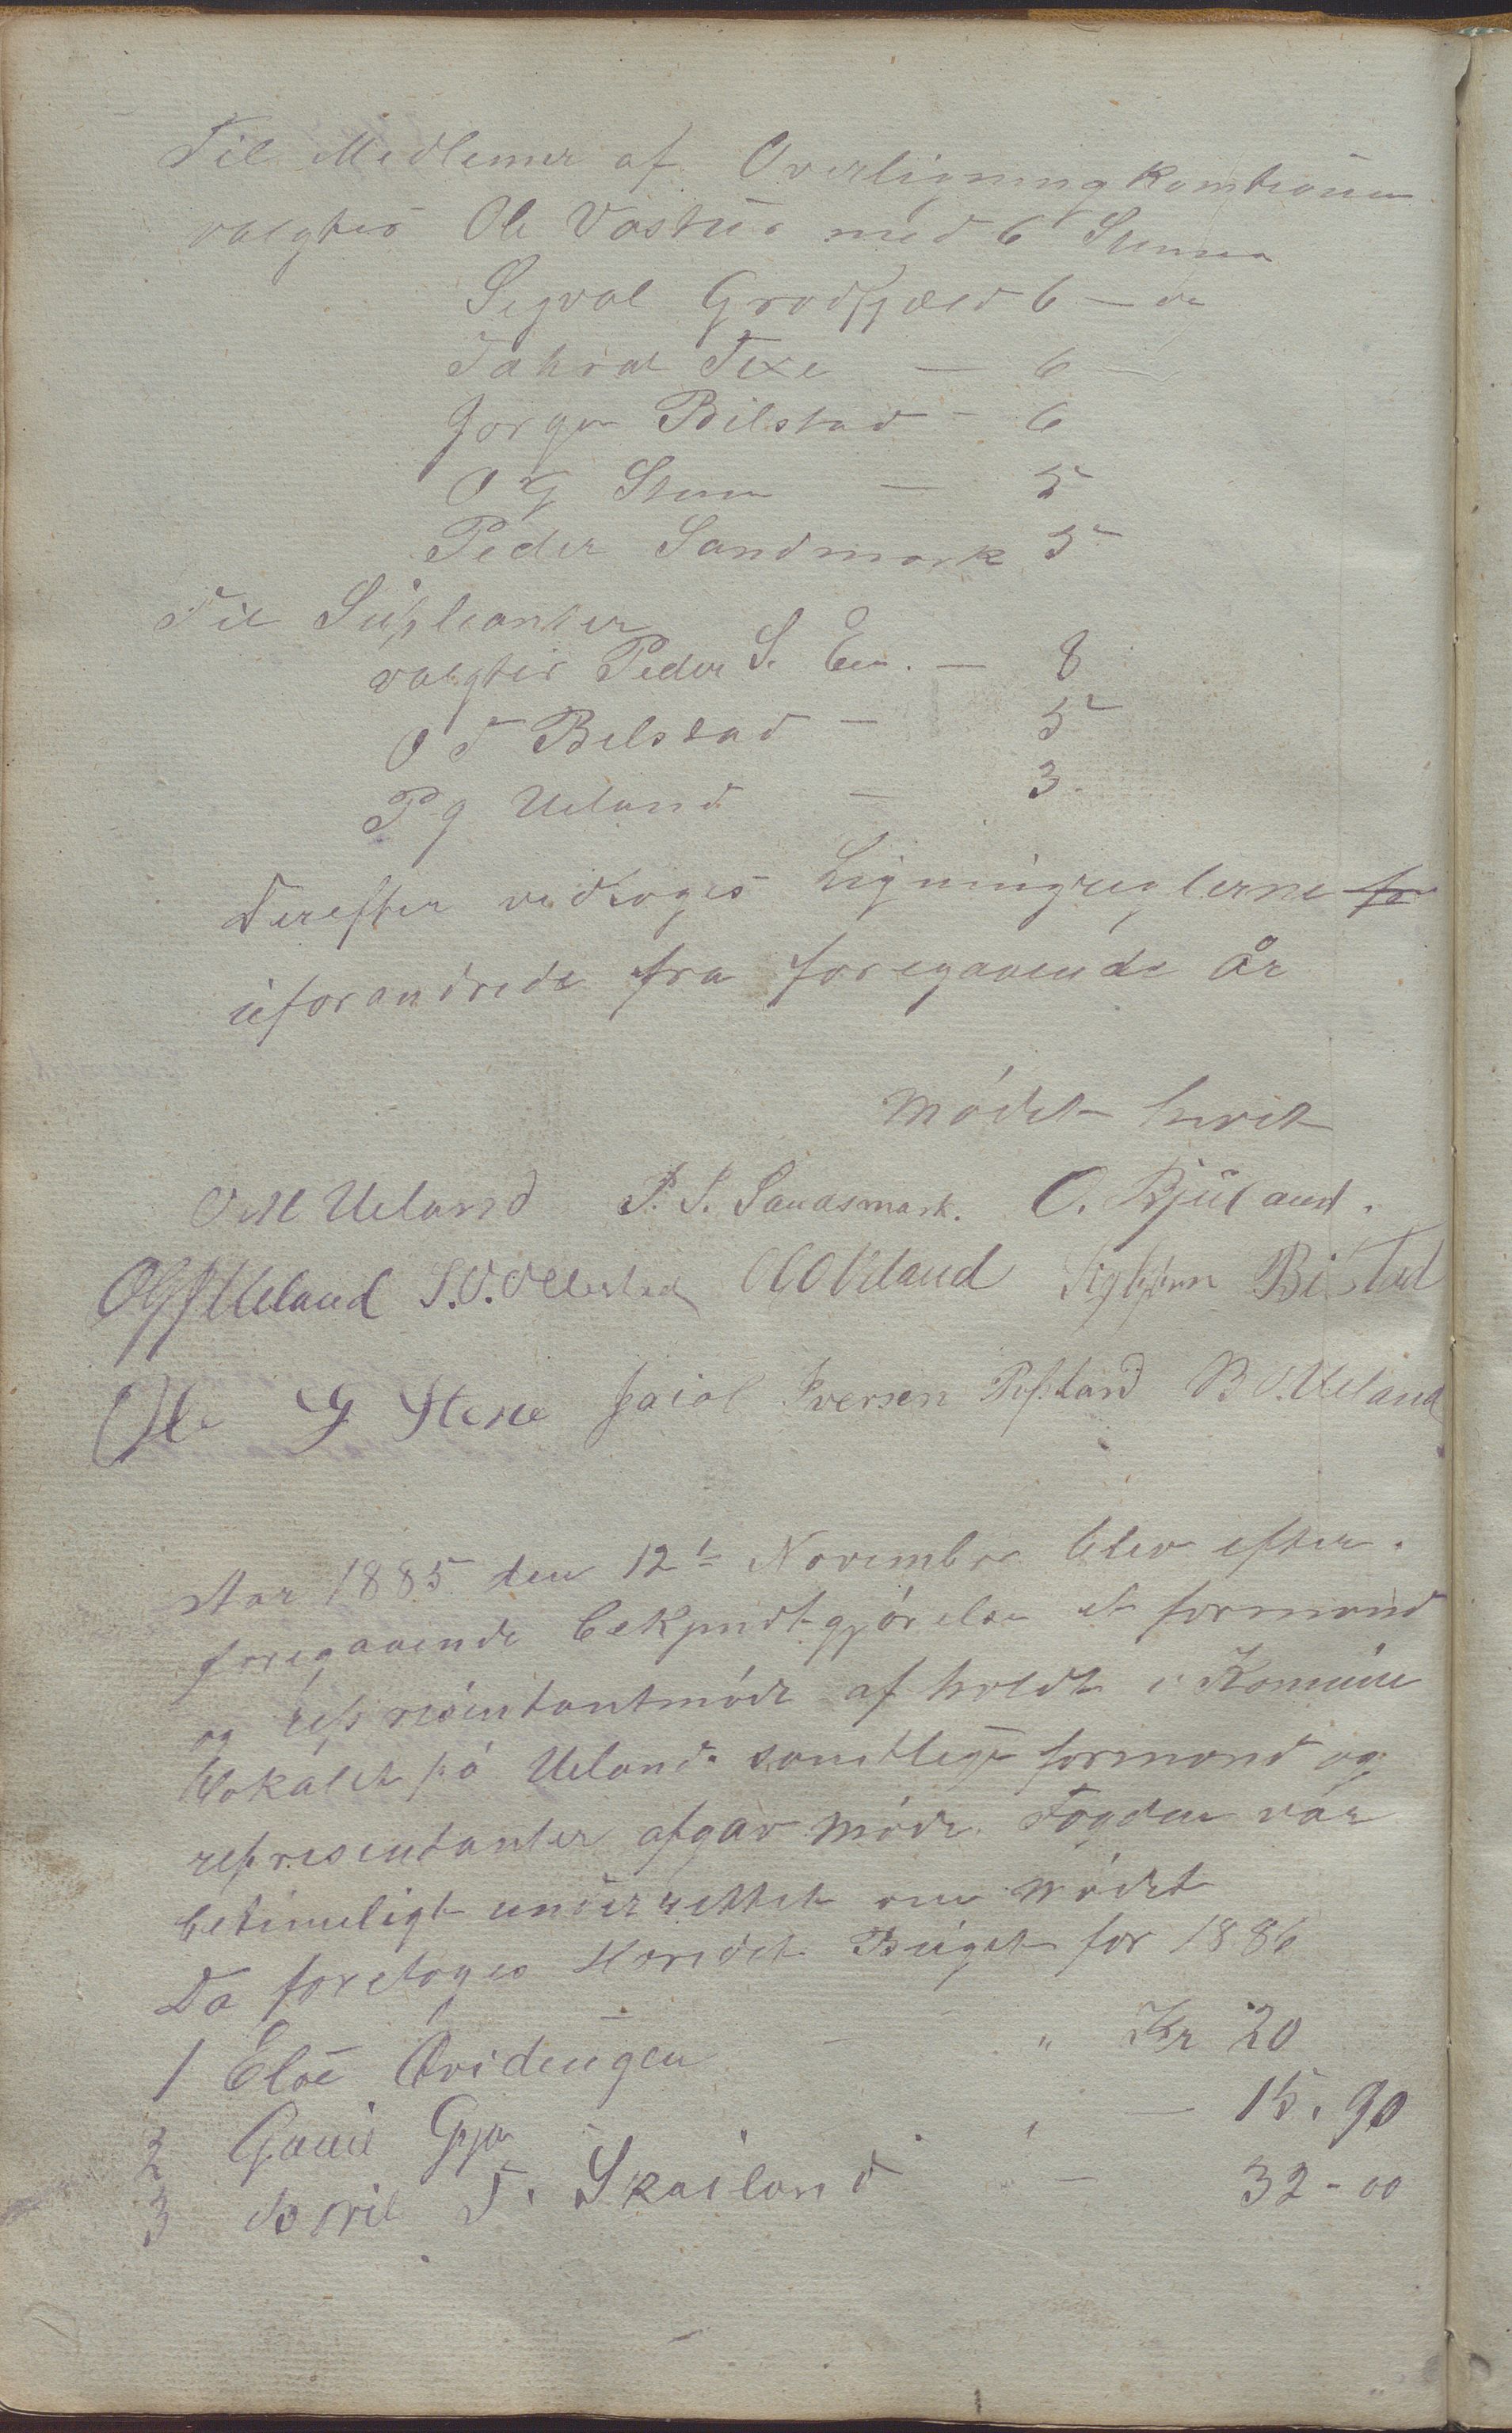 Til Medlemer af Overligning
valgtes Ole Vastue med 6 Stemer
Sigval Grodfjæld 6 — do
Tahral Fixe — 6 —
Jorgen Bilstad - 6
O G Stene — 5
Peder Sandmark 5
Til Supleanter
valgtes Peder S. Eie. — 8
O T Bilstad — 5
P g Ueland — 3.
Derefter vedtoges Ligningreglerne
uforandrede fra foregaaende År
Mødet hevet
O M Ueland P. S. Sandsmark. O. Bjuland.
O G Ueland S. O. Ollestad O O Ueland Sigbjørn Bilstad
Ole G Stene Jacob Iversen B O. Ueland
Aar 1885 den 12te November blev efter
foregaaende bekjendtgjørelse et formand
og represéntantmøde afholdt i Komune
lokalet på Ueland. samtlege formend og
representanter afgav Møde. Fogden var
betimeligt underrettet om Mødet
Da foretoges Heredet Búget for 1886
1 Eloe Ovidengen — " Kr 20
2 Gauil Gya " — 15.90
3 Boril T. Skailand " — 32-00